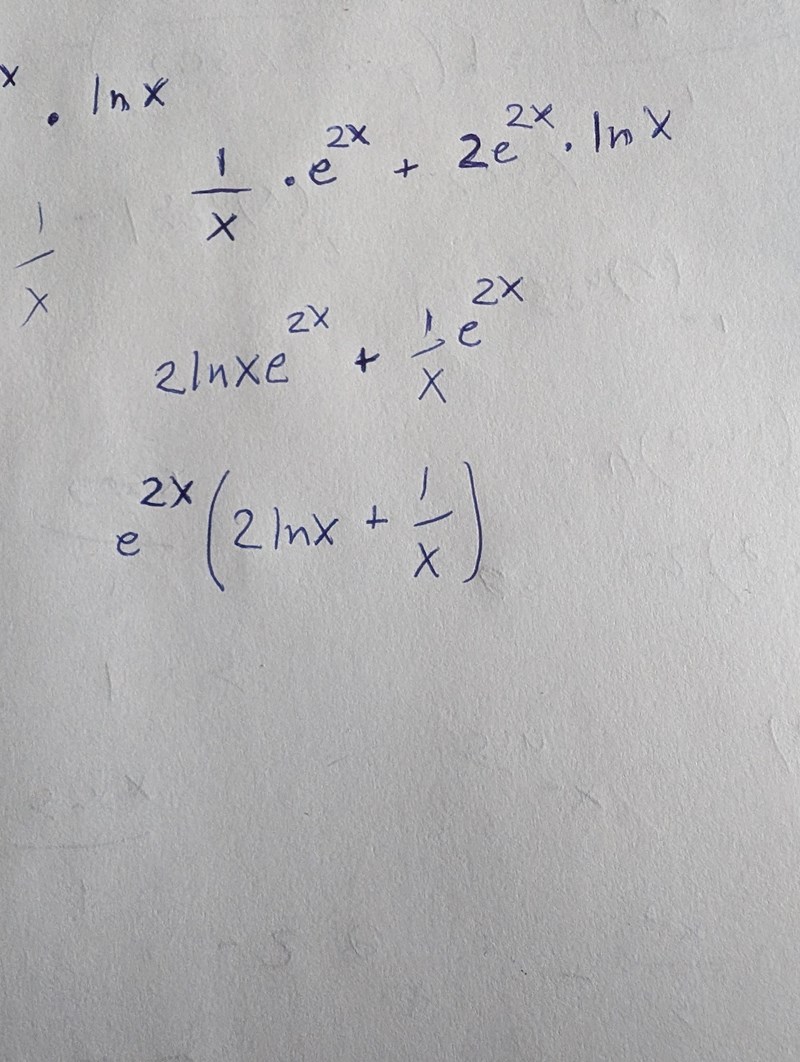 x · ln x
1/x · e^2x + 2e^2x · ln x
1/x
2lnxe^2x + 1/x e^2x
e^2x (2 lnx + 1/x)